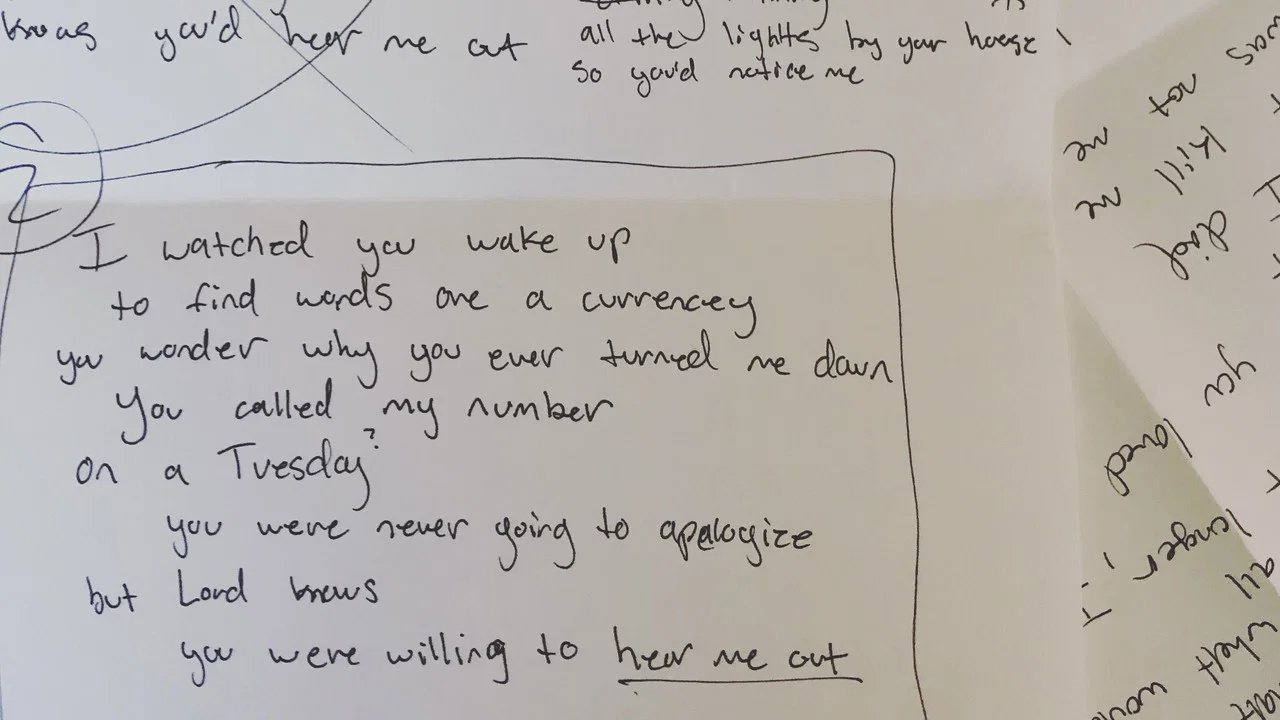 knows you'd hear me out
all the lightts by your house
so you'd notice me
2
I watched you wake up
to find words are a currencey
you wonder why you ever turned me down
You called my number
on a Tuesday?
you were never going to apologize
but Lord knows
you were willing to hear me out
was
not me
kill me
died
I
you
loved
longer I
all
whett
would